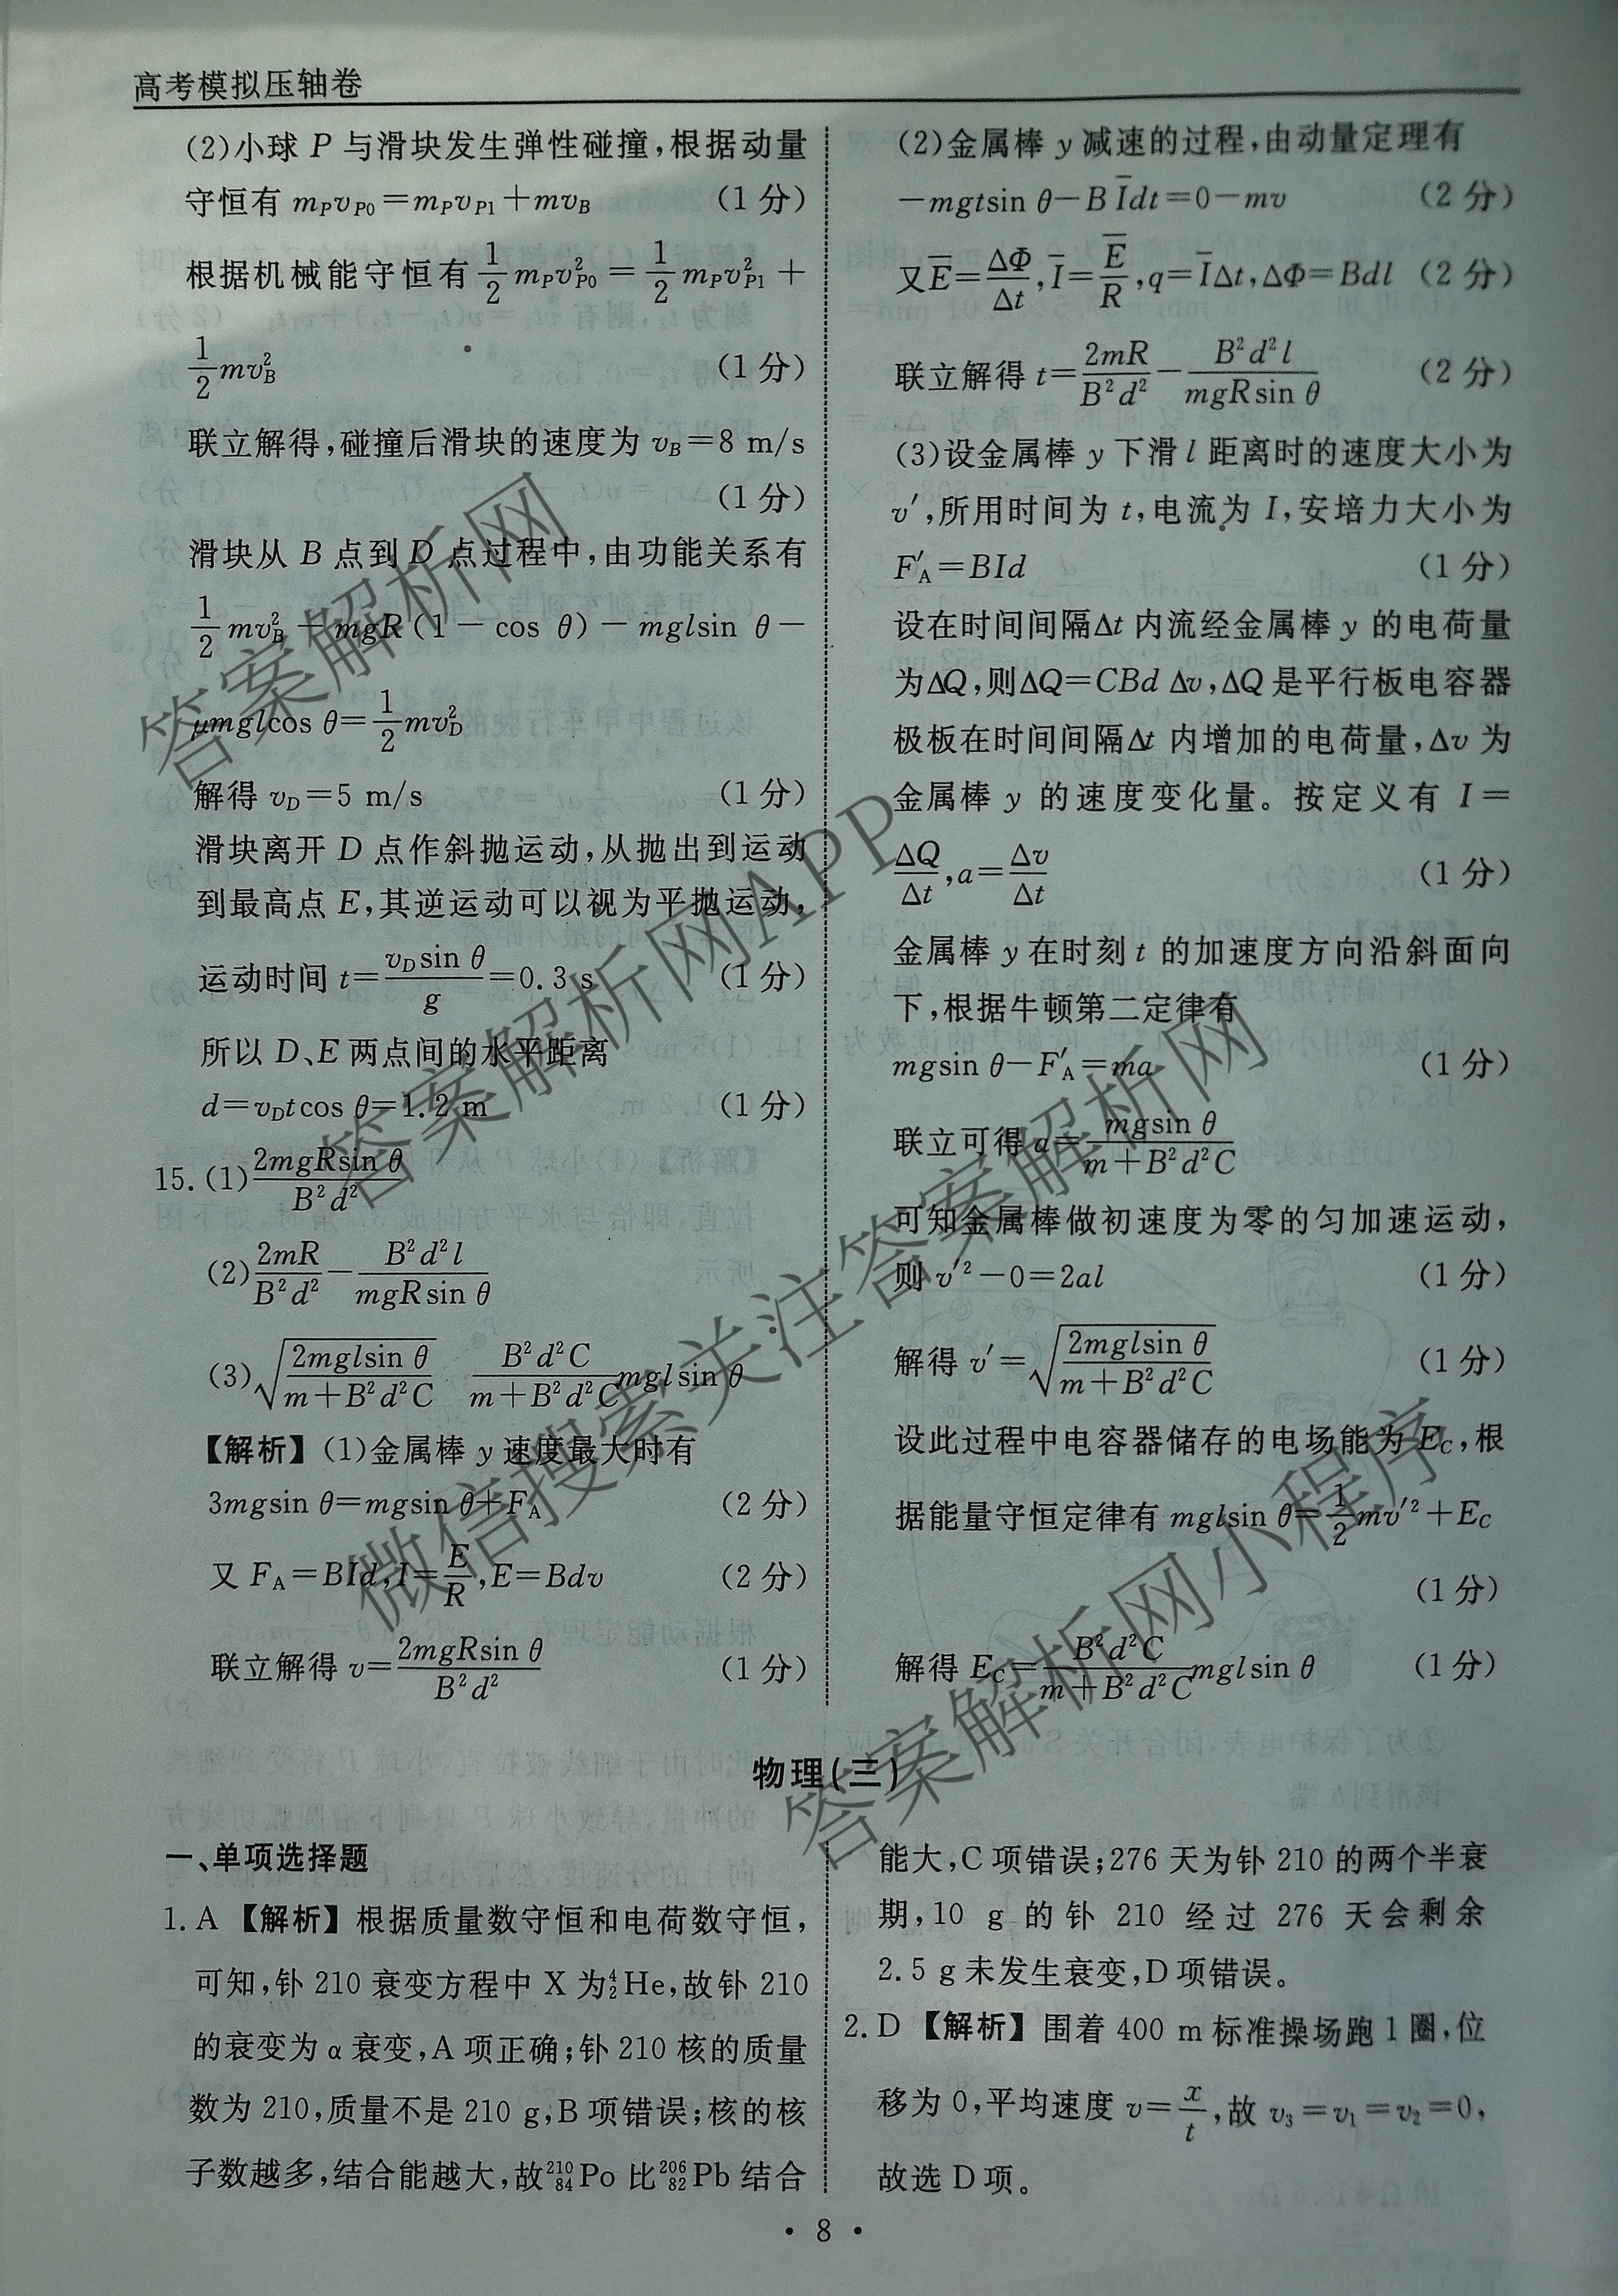 高考模拟压轴卷
(2)小球 P 与滑块发生弹性碰撞,根据动量
守恒有 m_P v_P0 = m_P v_P1 + mv_B (1 分)
根据机械能守恒有 1/2 m_P v²_P0 = 1/2 m_P v²_P1 +
1/2 mv²_B (1 分)
联立解得,碰撞后滑块的速度为 v_B = 8 m/s
(1 分)
滑块从 B 点到 D 点过程中,由功能关系有
1/2 mv²_B - mgR(1 - cos θ) - mglsin θ -
μmglcos θ = 1/2 mv²_D
解得 v_D = 5 m/s (1 分)
滑块离开 D 点作斜抛运动,从抛出到运动
到最高点 E,其逆运动可以视为平抛运动,
运动时间 t = v_D sin θ/g = 0.3 s (1 分)
所以 D、E 两点间的水平距离
d = v_D tcos θ = 1.2 m (1 分)
15. (1) 2mgRsin θ/B²d²
(2) 2mR/B²d² - B²d²l/mgRsin θ
(3) √(2mglsin θ/(m+B²d²C)) B²d²C/(m+B²d²C) mglsin θ
【解析】(1)金属棒 y 速度最大时有
3mgsin θ = mgsin θ + F_A (2 分)
又 F_A = BId, I = E/R, E = Bdv (2 分)
联立解得 v = 2mgRsin θ/B²d² (1 分)
(2)金属棒 y 减速的过程,由动量定理有
-mgtsin θ - B I̅dt = 0 - mv (2 分)
又 E̅ = ΔΦ/Δt, I̅ = E̅/R, q = I̅Δt, ΔΦ = Bdl (2 分)
联立解得 t = 2mR/B²d² - B²d²l/mgRsin θ (2 分)
(3)设金属棒 y 下滑 l 距离时的速度大小为
v′,所用时间为 t,电流为 I,安培力大小为
F′_A = BId (1 分)
设在时间间隔Δt 内流经金属棒 y 的电荷量
为ΔQ,则ΔQ = CBd Δv,ΔQ 是平行板电容器
极板在时间间隔Δt 内增加的电荷量,Δv 为
金属棒 y 的速度变化量。按定义有 I =
ΔQ/Δt, a = Δv/Δt (1 分)
金属棒 y 在时刻 t 的加速度方向沿斜面向
下,根据牛顿第二定律有
mgsin θ - F′_A = ma (1 分)
联立可得 a = mgsin θ/(m+B²d²C)
可知金属棒做初速度为零的匀加速运动,
则 v′² - 0 = 2al (1 分)
解得 v′ = √(2mglsin θ/(m+B²d²C)) (1 分)
设此过程中电容器储存的电场能为 E_C,根
据能量守恒定律有 mglsin θ = 1/2 mv′² + E_C
(1 分)
解得 E_C = B²d²C/(m+B²d²C) mglsin θ (1 分)
物理(三)
一、单项选择题
1. A 【解析】根据质量数守恒和电荷数守恒,
可知,钋 210 衰变方程中 X 为⁴₂He,故钋 210
的衰变为 α 衰变,A 项正确;钋 210 核的质量
数为 210,质量不是 210 g,B 项错误;核的核
子数越多,结合能越大,故²¹⁰₈₄Po 比²⁰⁶₈₂Pb 结合
能大,C 项错误;276 天为钋 210 的两个半衰
期,10 g 的钋 210 经过 276 天会剩余
2.5 g 未发生衰变,D 项错误。
2. D 【解析】围着 400 m 标准操场跑 1 圈,位
移为 0,平均速度 v = x/t,故 v₃ = v₁ = v₂ = 0,
故选 D 项。
· 8 ·
答案解析网
答案解析网APP
微信搜索关注答案解析网
答案解析网小程序